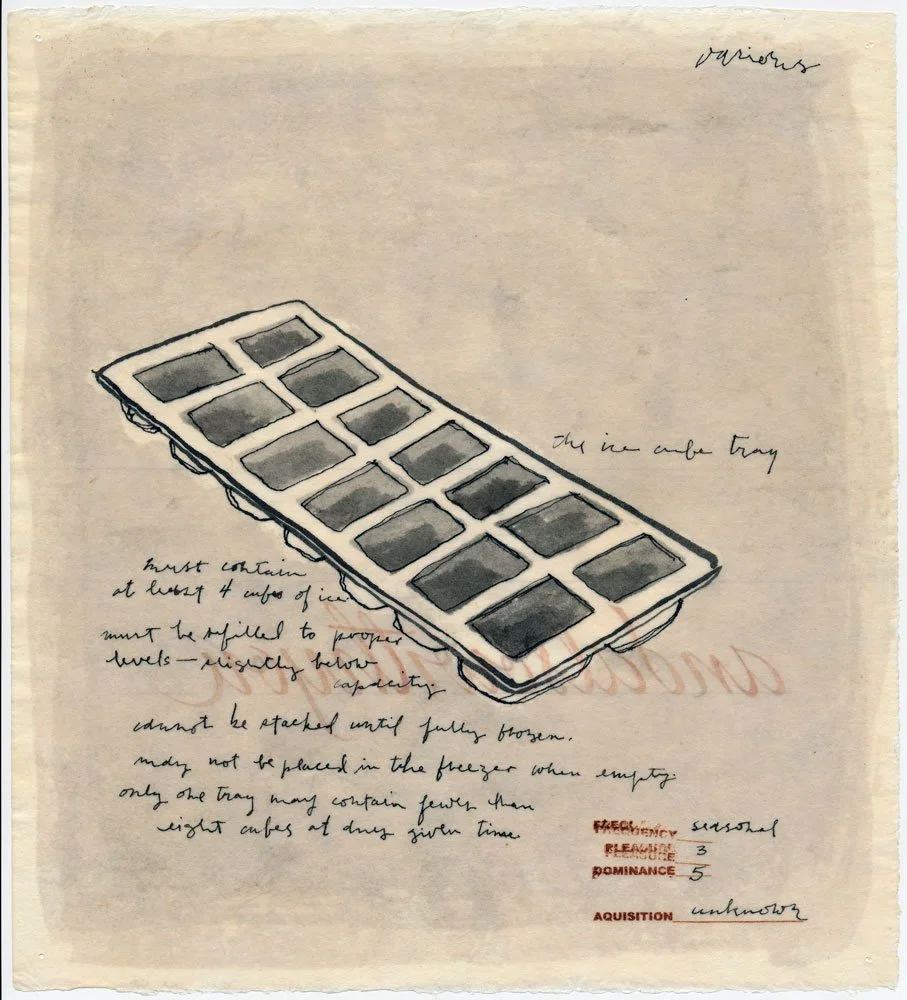 various
the ice cube tray
must contain
at least 4 cubes of ice
must be refilled to proper
levels — slightly below
capacity
cannot be stacked until fully frozen.
may not be placed in the freezer when empty.
only one tray may contain fewer than
eight cubes at any given time
FREQUENCY seasonal
PLEASURE 3
DOMINANCE 5
AQUISITION unknown